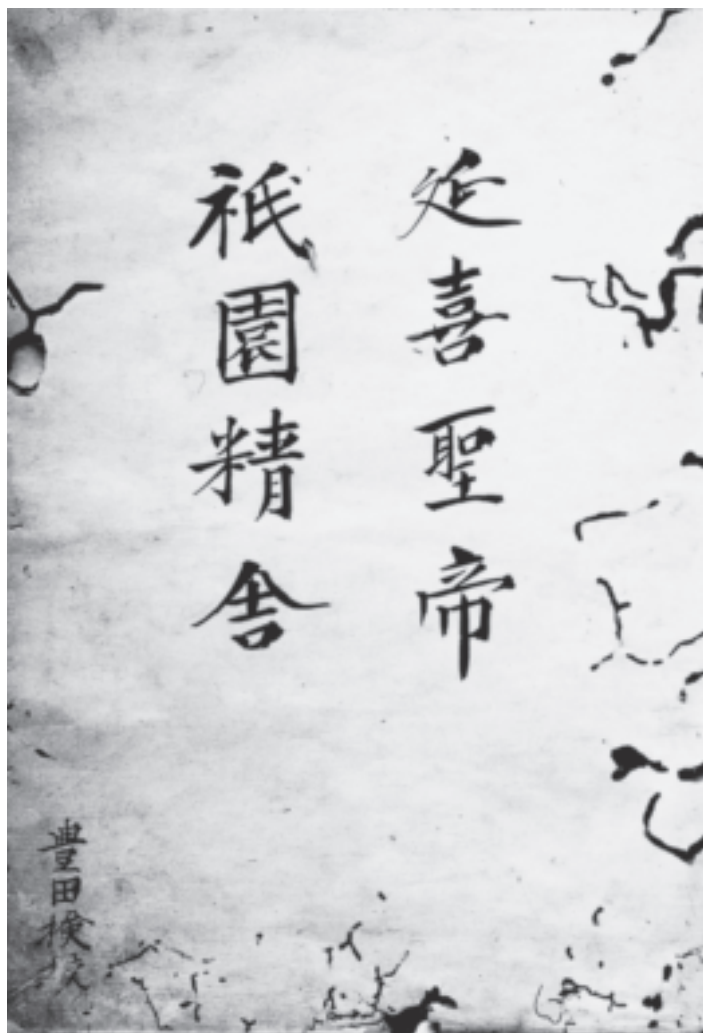 延喜聖帝
祇園精舎
豊田検校